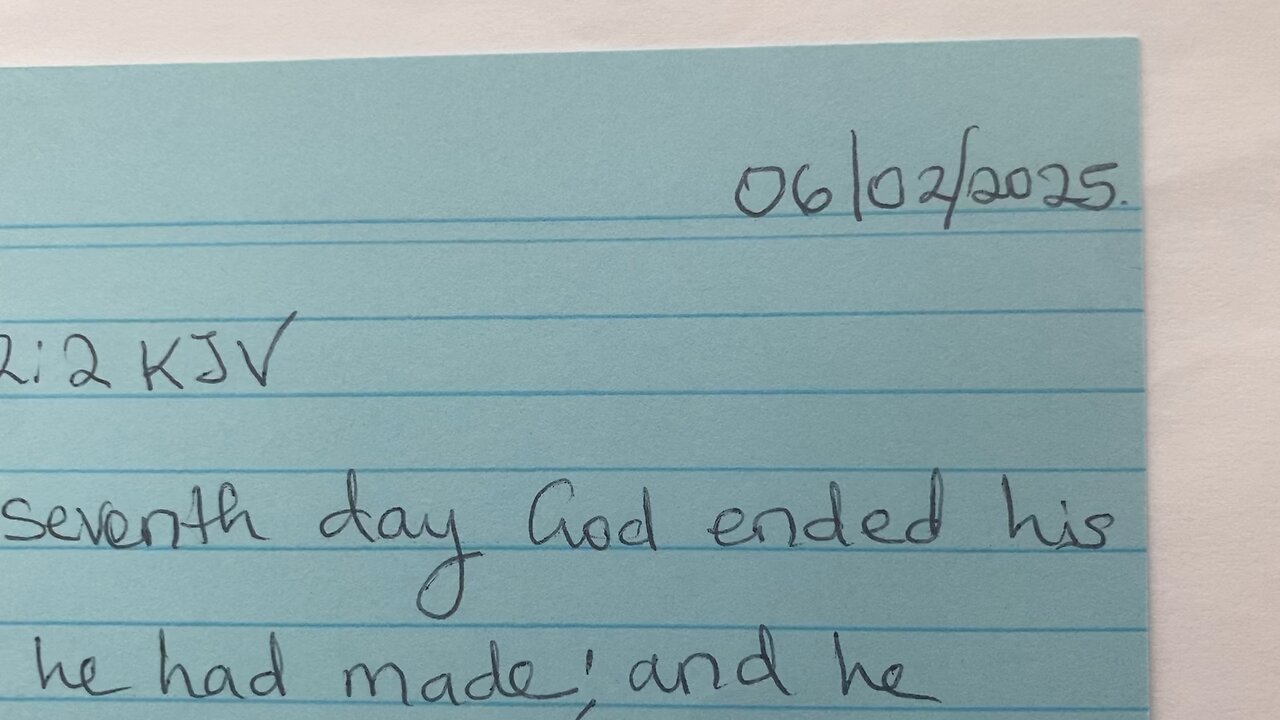 06/02/2025.
2:2 KJV
seventh day God ended his
he had made; and he